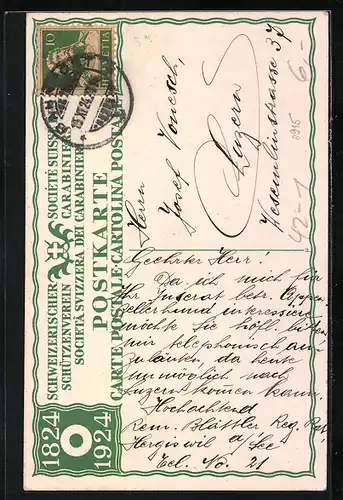 10
HELVETIA
1824
1924
SCHWEIZERISCHER
SCHÜTZENVEREIN
SOCIÉTÉ SUISSE
CARABINIERS
SOCIETÀ SVIZZERA DEI CARABINIERI
POSTKARTE
CARTE POSTALE · CARTOLINA POSTALE
Herrn
Josef Vonesch,
Luzern
Wesemlinstrasse 37
6,-
3915
42-1
Geehrter Herr!
Da ich mich für
Ihr Inserat betr. Appen-
zellerhund interessiere
möchte Sie höfl. bitten
mir telephonisch an-
zuläuten, da heute
unmöglich nach
Luzern kommen kann.
Hochachtend
Rem. Blättler Reg. Rat
Hergiswil a/See
Tel. No. 21